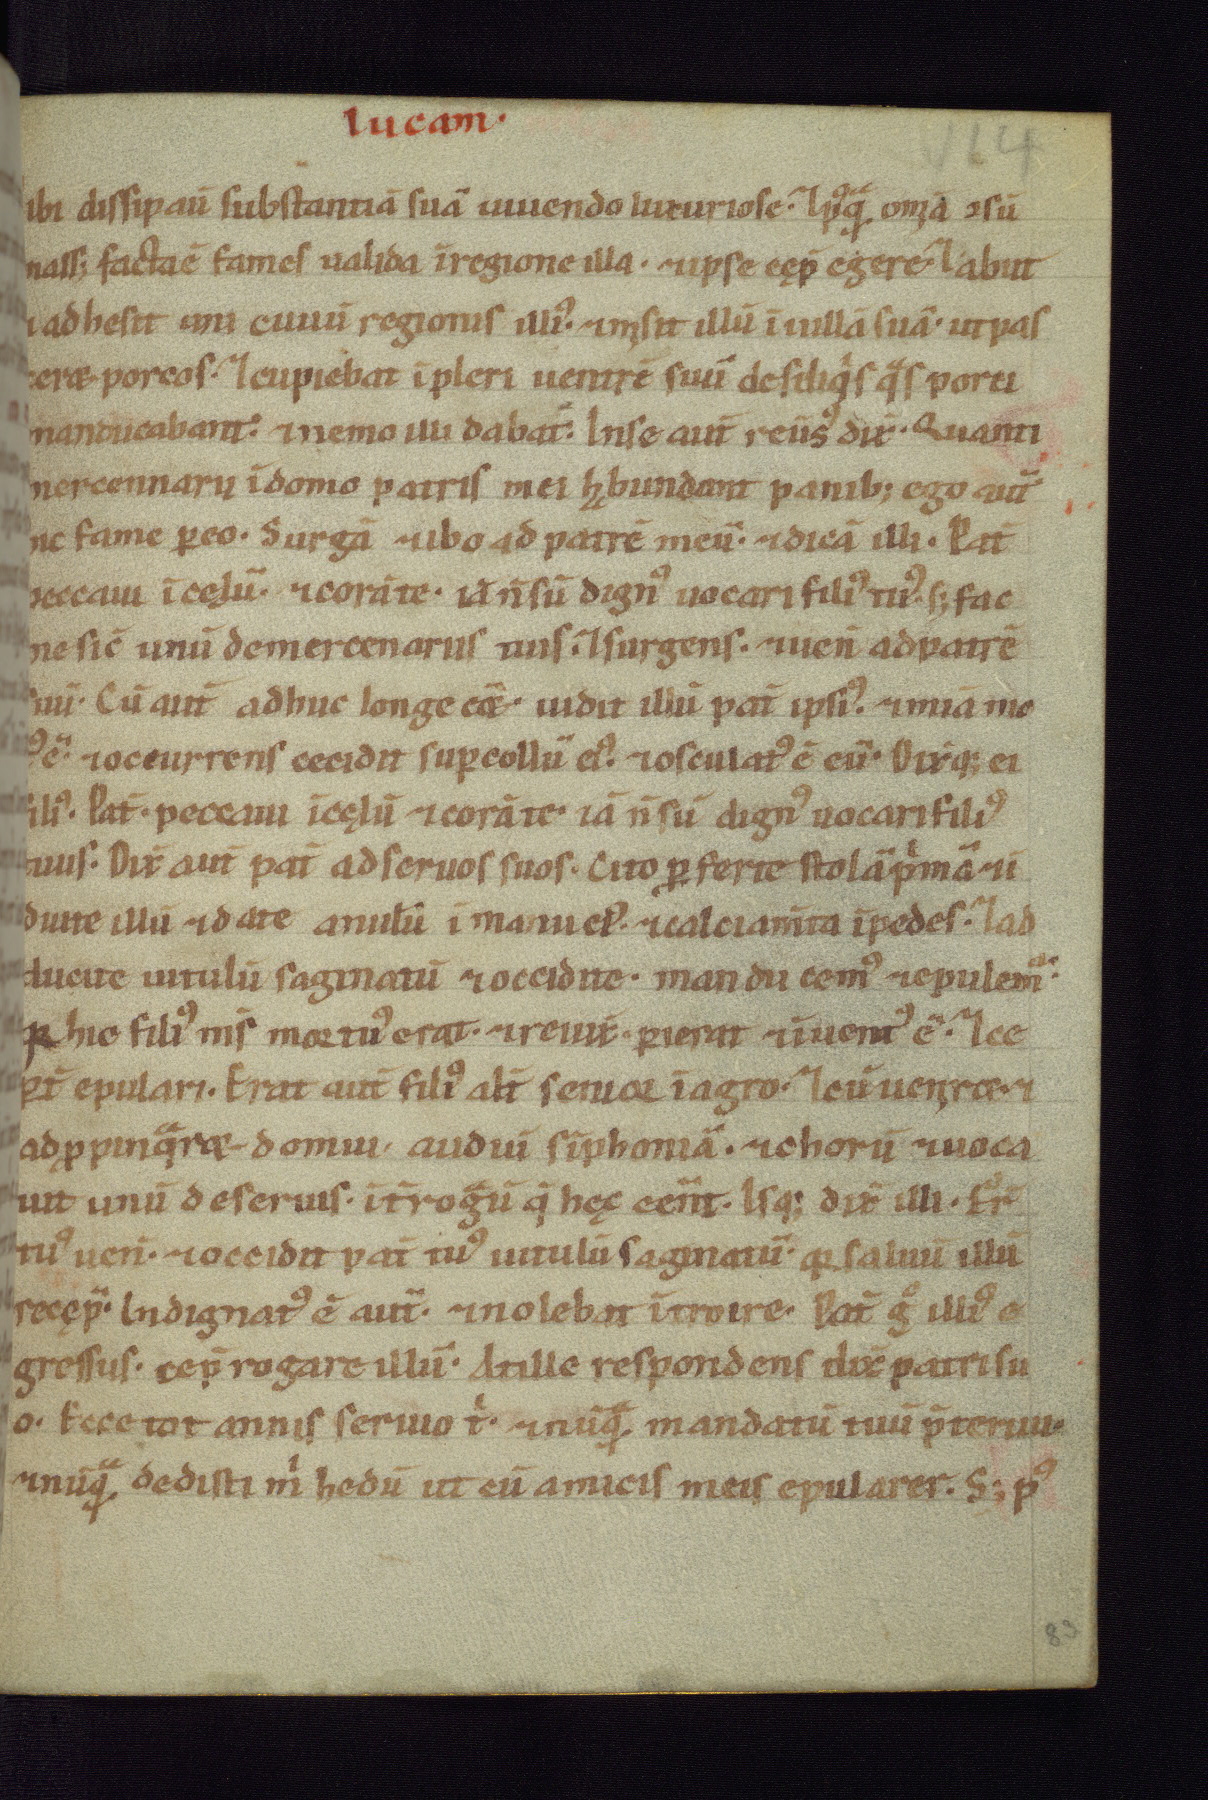 lucam·
114
ibi dissipaū substantiā suā uiuendo luxuriose· ⁊ posͭꝗ̄ om̄ia ↄsū
mass; facta ē fames ualida ī regione illa· ⁊ ipse cęp̄ egere· ⁊ abiit
⁊ adhesit uni ciuiū regionis illiꝰ· ⁊ misit illū ī uillā suā· ut pas
ceret porcos· ⁊ cupiebat īpleri uentrē suū de siliqͥs qᵃs porci
manducabant· ⁊ nemo illi dabat̄· In se aut̄ reūsꝰ dix̄· Quanti
mercennarii ī domo patris mei habundant panib; ego aut̄
hic fame ꝑeo· Surgā ⁊ ibo ad patrē meū· ⁊ dicā illi· Pat̄
peccaui ī cęlū· ⁊ corā te· iā n̄ sū dignꝰ uocari filiꝰ tuꝰ· s; fac
me sic̄ unū de mercenariis tuis· ⁊ surgens· ⁊ uen̄ ad patrē
suū· Cū aut̄ adhuc longe eēt· uidit illū pat̄ ipsiꝰ· ⁊ mīa mo
tꝰ ē· ⁊ occurrens cecidit supcollū eiꝰ· ⁊ osculatꝰ ē eū· Dixq; ei
filiꝰ· Pat̄· peccaui ī cęlū ⁊ corā te· iā n̄ sū dignꝰ uocari filiꝰ
tuus· Dix̄ aut̄ pat̄ ad seruos suos· Cito ꝓferte stolā pͥmā ⁊ i
duite illū ⁊ date anulū ī manu eiꝰ· ⁊ calciam̄ta ī pedes· ⁊ ad
ducite uitulū saginatū ⁊ occidite· manducemꝰ ⁊ epulem̄·
qͥ hic filiꝰ m̄s mortuꝰ erat· ⁊ reuix̄· ꝑierat ⁊ īuentꝰ ē· ⁊ ce
pēt epulari· Erat aut̄ filiꝰ alī senior ī agro· ⁊ cū uenret· ⁊
adꝓpinqᵃret domui· audiui sīphoniā· ⁊ chorū ⁊ uoca
uit unū de seruis· īt̄rogᵃū q̄ hęc eēnt· Isq; dix̄ illi· Fr̄
tuꝰ uen̄· ⁊ occidit pat̄ tuꝰ uitulū saginatū· qͥ saluū illū
recęp̄· Indignatꝰ ē aut̄· ⁊ nolebat ītroire· Pat̄ gͦ illiꝰ e
gressus· cep̄ rogare illū· At ille respondens dix̄ patri su
o· Ecce tot annis seruio tͥ· ⁊ nūqᵃ mandatū tuū p̄teriui·
⁊ nūqᵃ dedisti mͥ hedū ut cū amicis meis epularer· S; pꝰ
83